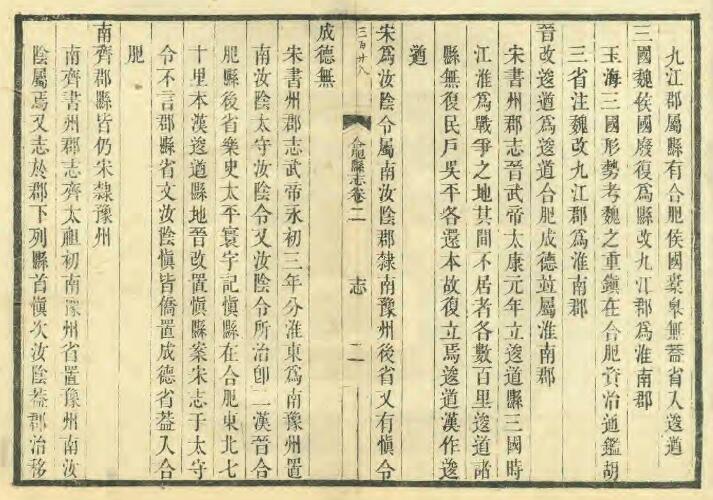 九江郡屬縣有合肥侯國橐皋無葢省入逡遒
三國魏侯國廢復爲縣改九江郡爲淮南郡
玉海三國形勢考魏之重鎮在合肥資治通鑑胡
三省注魏改九江郡爲淮南郡
晉改逡遒爲逡道合肥成德竝屬淮南郡
宋書州郡志晉武帝太康元年立逡道縣三國時
江淮爲戰爭之地其間不居者各數百里逡道諸
縣無復民戸吳平各還本故復立焉逡道漢作逡
遒
宋爲汝陰令屬南汝陰郡隸南豫州後省又有愼令
三百廿八
合肥縣志卷二
志
二
成德無
宋書州郡志武帝永初三年分淮東爲南豫州置
南汝陰太守汝陰令又汝陰令所治卽二漢晉合
肥縣後省樂史太平寰宇記愼縣在合肥東北七
十里本漢逡遒縣地晉改置愼縣案宋志于太守
令不言郡縣省文汝陰愼皆僑置成德省葢入合
肥
南齊郡縣皆仍宋隸豫州
南齊書州郡志齊太祖初南豫州省置豫州南汝
陰屬焉又志於郡下列縣首愼次汝陰葢郡治移